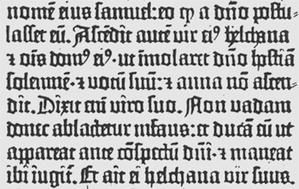 nomē eius samuel: eo ꝙ a dño postu-
lasset eū. Ascēdit autē vir eiꝰ helchana
⁊ oīs domꝰ eiꝰ. ut īmolaret dño hostiā
solemnē· ⁊ votū suū: ⁊ anna nō ascen-
dit. Dixit enī viro suo. Non vadam
donec ablactetur infans: et ducā eū ut
appareat ante cōspectū dñi· ⁊ maneat
ibi iugiꝰ. Et ait ei helchana vir suus.